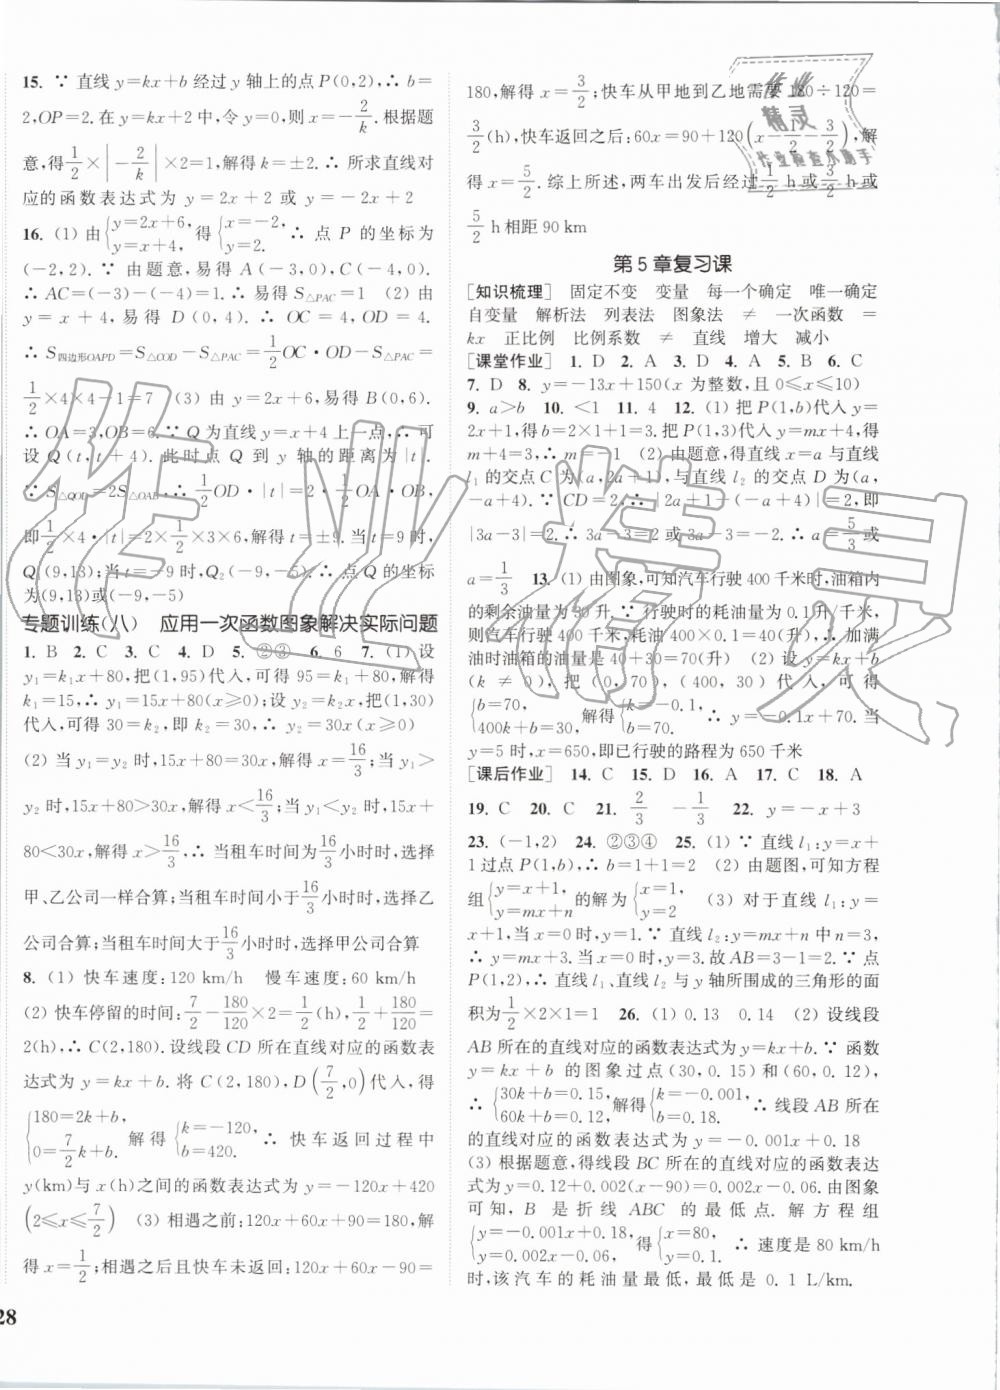 15. ∵ 直线 y=kx+b 经过 y 轴上的点 P(0,2),∴ b=
2,OP=2.在 y=kx+2 中,令 y=0,则 x=-2/k.根据题
意,得1/2×|-2/k|×2=1,解得 k=±2. ∴ 所求直线对
应的函数表达式为 y=2x+2 或 y=-2x+2
16. (1) 由{y=2x+6, y=x+4, 得{x=-2, y=2. ∴ 点 P 的坐标为
(-2,2). ∵ 由题意,易得 A(-3,0),C(-4,0).
∴ AC=(-3)-(-4)=1. ∴ 易得 S△PAC=1 (2) 由
y=x+4,易得 D(0,4). ∴ OC=4,OD=4.
∴ S四边形OAPD=S△COD-S△PAC=1/2OC·OD-S△PAC=
1/2×4×4-1=7 (3) 由 y=2x+6,易得 B(0,6).
∴ OA=3,OB=6.∵ Q 为直线 y=x+4 上一点,∴ 可
设 Q(t,t+4).此时点 Q 到 y 轴的距离为|t|.
∵ S△QOD=2S△OAB,∴ 1/2OD·|t|=2×1/2OA·OB,
即1/2×4·|t|=2×1/2×3×6,解得 t=±9.当 t=9 时,
Q1(9,13);当 t=-9 时,Q2(-9,-5).∴ 点 Q 的坐标
为(9,13)或(-9,-5)
专题训练(八) 应用一次函数图象解决实际问题
1. B 2. C 3. C 4. D 5. ②③ 6. 6 7. (1) 设
y1=k1x+80,把(1,95)代入,可得 95=k1+80,解得
k1=15,∴ y1=15x+80(x≥0);设 y2=k2x,把(1,30)
代入,可得 30=k2,即 k2=30,∴ y2=30x(x≥0)
(2) 当 y1=y2 时,15x+80=30x,解得 x=16/3;当 y1>
y2 时,15x+80>30x,解得 x<16/3;当 y1<y2 时,15x+
80<30x,解得 x>16/3,∴ 当租车时间为16/3小时时,选择
甲、乙公司一样合算;当租车时间小于16/3小时时,选择乙
公司合算;当租车时间大于16/3小时时,选择甲公司合算
8. (1) 快车速度:120 km/h 慢车速度:60 km/h
(2) 快车停留的时间:7/2-180/120×2=1/2(h),1/2+180/120=
2(h),∴ C(2,180).设线段 CD 所在直线对应的函数表
达式为 y=kx+b.将 C(2,180),D(7/2,0)代入,得
{180=2k+b, 0=7/2k+b. 解得{k=-120, b=420. ∴ 快车返回过程中
y(km)与 x(h)之间的函数表达式为 y=-120x+420
(2≤x≤7/2) (3) 相遇之前:120x+60x+90=180,解
得 x=1/2;相遇之后且快车未返回:120x+60x-90=
28
180,解得 x=3/2;快车从甲地到乙地需要180÷120=
3/2(h),快车返回之后:60x=90+120(x-1/2-3/2),解
得 x=5/2.综上所述,两车出发后经过1/2 h或3/2 h或
5/2 h相距 90 km
第5章复习课
[知识梳理] 固定不变 变量 每一个确定 唯一确定
自变量 解析法 列表法 图象法 ≠ 一次函数 =
kx 正比例 比例系数 ≠ 直线 增大 减小
[课堂作业] 1. D 2. A 3. D 4. A 5. B 6. C
7. D 8. y=-13x+150(x 为整数,且 0≤x≤10)
9. a>b 10. <1 11. 4 12. (1) 把 P(1,b)代入 y=
2x+1,得 b=2×1+1=3.把 P(1,3)代入 y=mx+4,得
m+4=3,∴ m=-1 (2) 由题意,得直线 x=a 与直线
l1 的交点 C 为(a,2a+1),与直线 l2 的交点 D 为(a,
-a+4). ∵ CD=2,∴ |2a+1-(-a+4)|=2,即
|3a-3|=2. ∴ 3a-3=2 或 3a-3=-2. ∴ a=5/3或
a=1/3 13. (1) 由图象,可知汽车行驶 400 千米时,油箱内
的剩余油量为 30 升.∵ 行驶时的耗油量为 0.1 升/千米,
则汽车行驶 400 千米,耗油 400×0.1=40(升),∴ 加满
油时油箱的油量是 40+30=70(升) (2) 设 y=kx+b
(k≠0),把(0,70),(400,30)代入,可得
{b=70, 400k+b=30. 解得{k=-0.1, b=70. ∴ y=-0.1x+70.当
y=5 时,x=650,即已行驶的路程为 650 千米
[课后作业] 14. C 15. D 16. A 17. C 18. A
19. C 20. C 21. 2/3 -1/3 22. y=-x+3
23. (-1,2) 24. ②③④ 25. (1) ∵ 直线 l1:y=x+
1过点 P(1,b),∴ b=1+1=2 (2) 由题图,可知方程
组{y=x+1, y=mx+n 的解为{x=1, y=2 (3) 对于直线 l1:y=
x+1,当 x=0 时,y=1.∵ 直线 l2:y=mx+n 中 n=3,
∴ y=mx+3.当 x=0 时,y=3.故 AB=3-1=2.∵ 点
P(1,2),∴ 直线 l1、直线 l2 与 y 轴所围成的三角形的面
积为1/2×2×1=1 26. (1) 0.13 0.14 (2) 设线段
AB 所在的直线对应的函数表达式为 y=kx+b.∵ 函数
y=kx+b 的图象过点(30,0.15)和(60,0.12),
∴ {30k+b=0.15, 60k+b=0.12, 解得{k=-0.001, b=0.18. ∴ 线段 AB 所在
的直线对应的函数表达式为 y=-0.001x+0.18
(3) 根据题意,得线段 BC 所在的直线对应的函数表达
式为 y=0.12+0.002(x-90)=0.002x-0.06.由图象
可知,B 是折线 ABC 的最低点.解方程组
{y=-0.001x+0.18, y=0.002x-0.06, 得{x=80, y=0.1. ∴ 速度是 80 km/h
时,该汽车的耗油量最低,最低是 0.1 L/km.
作业精灵
作业
精灵
作业检查小助手